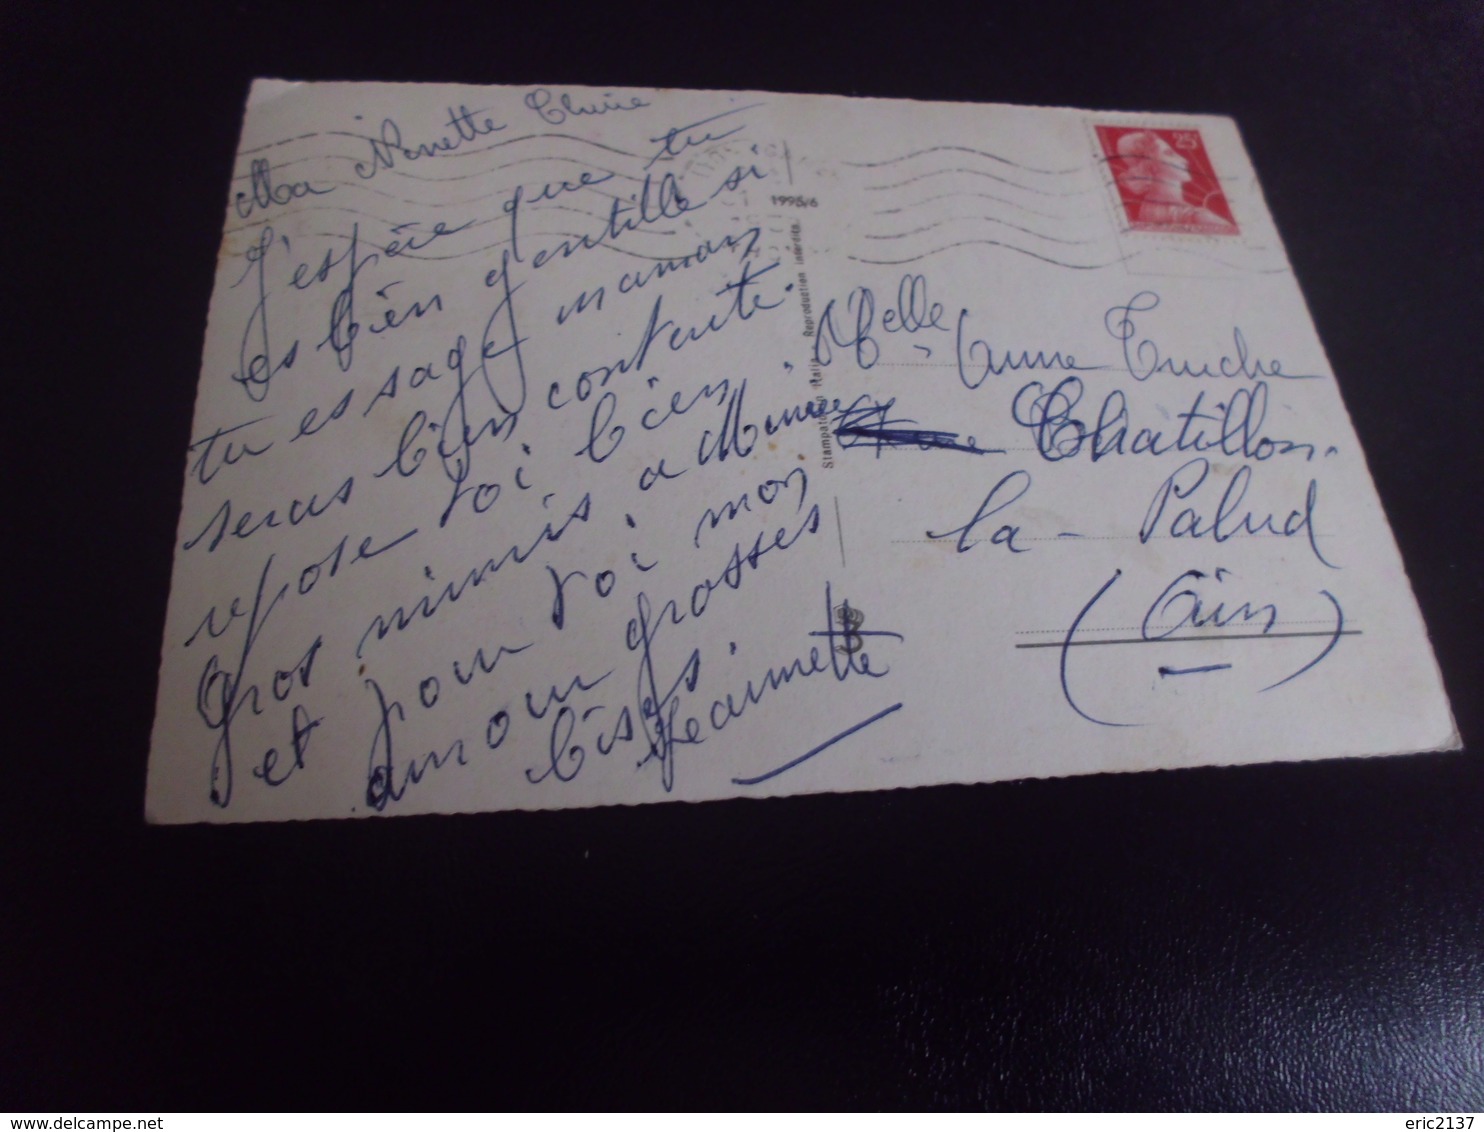 Ma Nanette Chérie
J'espère que tu
es bien gentille si
tu es sage maman
seras bien contente.
repose toi bien.
Gros mimis a Mimie
et pour toi mon
amour grosses
bises.
Jeannette
1995/6
Stampato in Italia - Reproduction interdite
25F
Melle Anne Truche
Chatillon.
la - Palud
(Ain)
eric2137